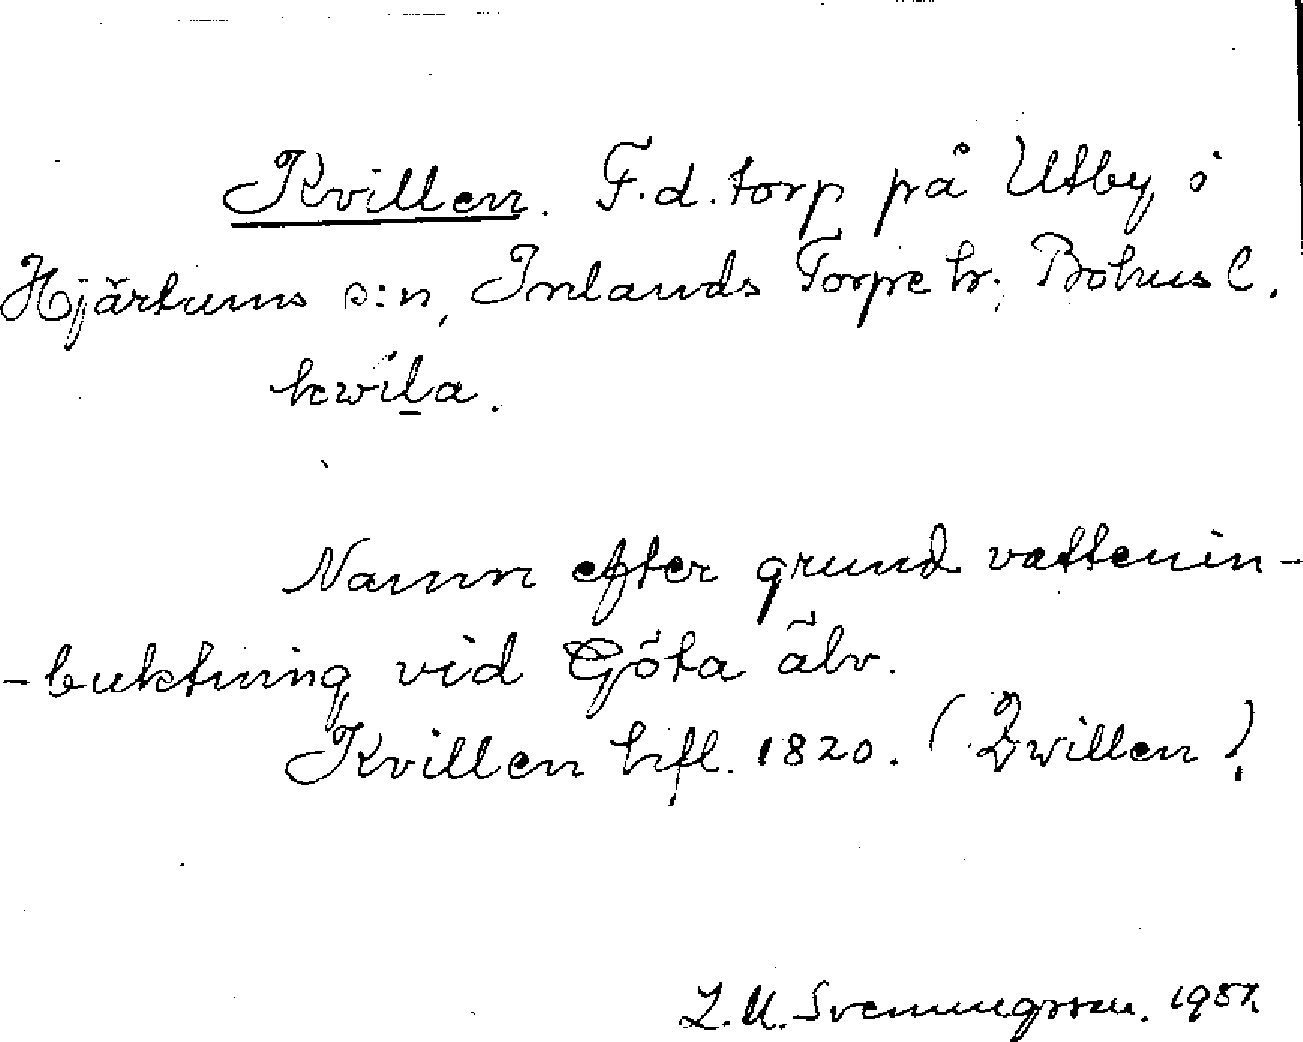 Kvillen. F.d. torp på Utby i
Hjärtums s:n, Inlands Torpe hr; Bohus l.
kwila.
Namn efter grund vattenin-
-buktning vid Göta älv.
Kvillen hfl. 1820. (Qwillen)
L.M. Svenungsson. 1957.